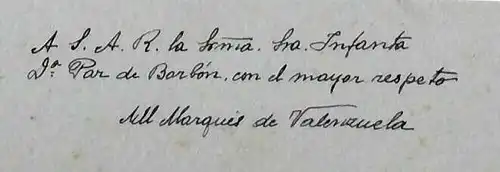 A S. A. R. la Srma. Sra. Infanta
Dª Paz de Borbón, con el mayor respeto
Ell Marqués de Valenzuela